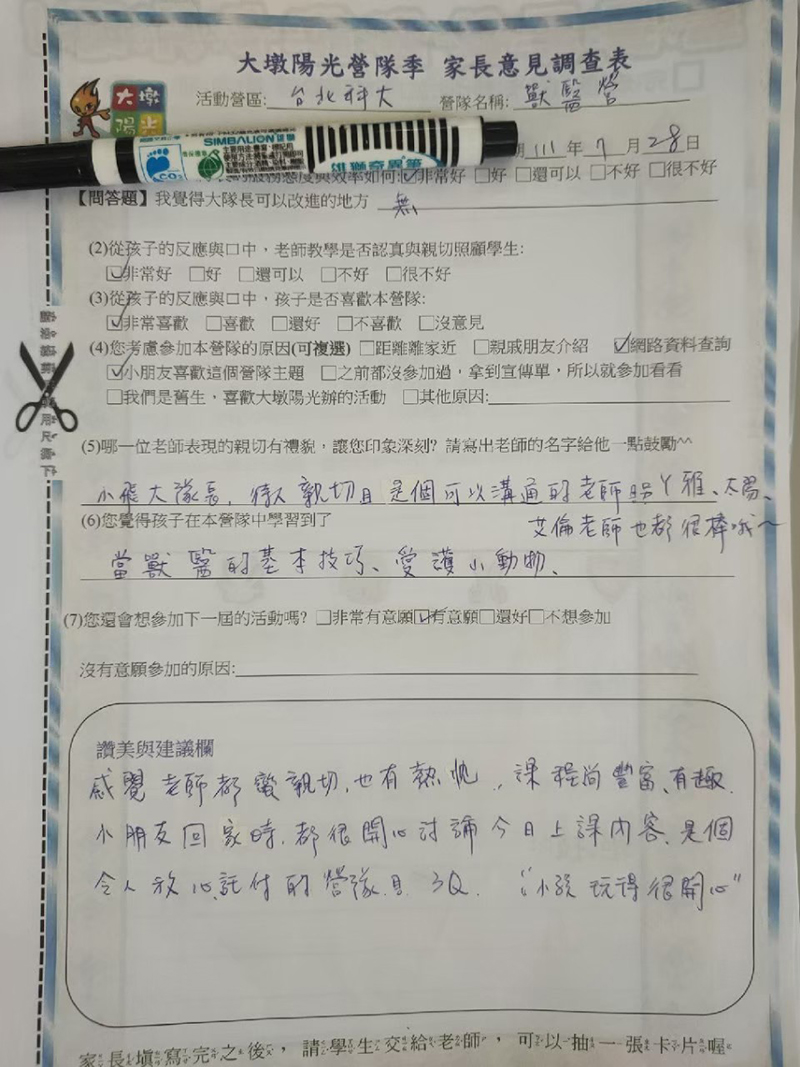 大墩陽光營隊季 家長意見調查表
大墩
陽光
活動營區: 台北科大 營隊名稱: 獸醫營
SIMBALION 雄獅
雄獅奇異筆
CO2
111 年 7 月 28 日
服務態度與效率如何: ☑非常好 □好 □還可以 □不好 □很不好
【問答題】我覺得大隊長可以改進的地方 無
(2)從孩子的反應與口中，老師教學是否認真與親切照顧學生:
☑非常好 □好 □還可以 □不好 □很不好
(3)從孩子的反應與口中，孩子是否喜歡本營隊:
☑非常喜歡 □喜歡 □還好 □不喜歡 □沒意見
(4)您考慮參加本營隊的原因(可複選) □距離離家近 □親戚朋友介紹 ☑網路資料查詢
☑小朋友喜歡這個營隊主題 □之前都沒參加過，拿到宣傳單，所以就參加看看
□我們是舊生，喜歡大墩陽光辦的活動 □其他原因:
(5)哪一位老師表現的親切有禮貌，讓您印象深刻? 請寫出老師的名字給他一點鼓勵^^
小飛大隊長，待人親切且是個可以溝通的老師 ㄚ雅、太陽、
艾倫老師也都很棒哦~
(6)您覺得孩子在本營隊中學習到了
當獸醫的基本技巧、愛護小動物、
(7)您還會想參加下一屆的活動嗎? □非常有意願☑有意願□還好□不想參加
沒有意願參加的原因:
讚美與建議欄
感覺老師都蠻親切，也有熱忱，課程尚豐富、有趣
小朋友回家時，都很開心討論今日上課內容、是個
令人放心託付的營隊 3Q. “小孩玩得很開心”
家長填寫完之後，請學生交給老師，可以抽一張卡片喔